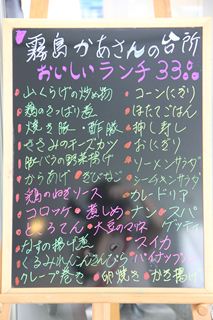 霧島かあさんの台所
おいしいランチ 33
・山くらげの炒め物 ・コーンにぎり
・鶏のさっぱり煮 ・ほたてごはん
・焼き豚・酢豚 ・押し寿し
・ささみのチーズカツ ・おにぎり
・豚バラの野菜揚げ ・ソーメンサラダ
・からあげ ・きびなご ・
・鶏のねぎソース ・カレードリア
・コロッケ ・煮しめ ・ナン ・スパ
・ところてん ・大豆のマリネ
・なすの揚げ煮 ・スイカ
・くるみれんこんきんぴら ・パイナップル
・クレープ巻き ・卵焼き ・かき揚げ